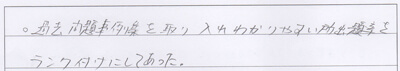 ○過去問題事例等を取り入れわかりやすい
ランク付けにしてあった。